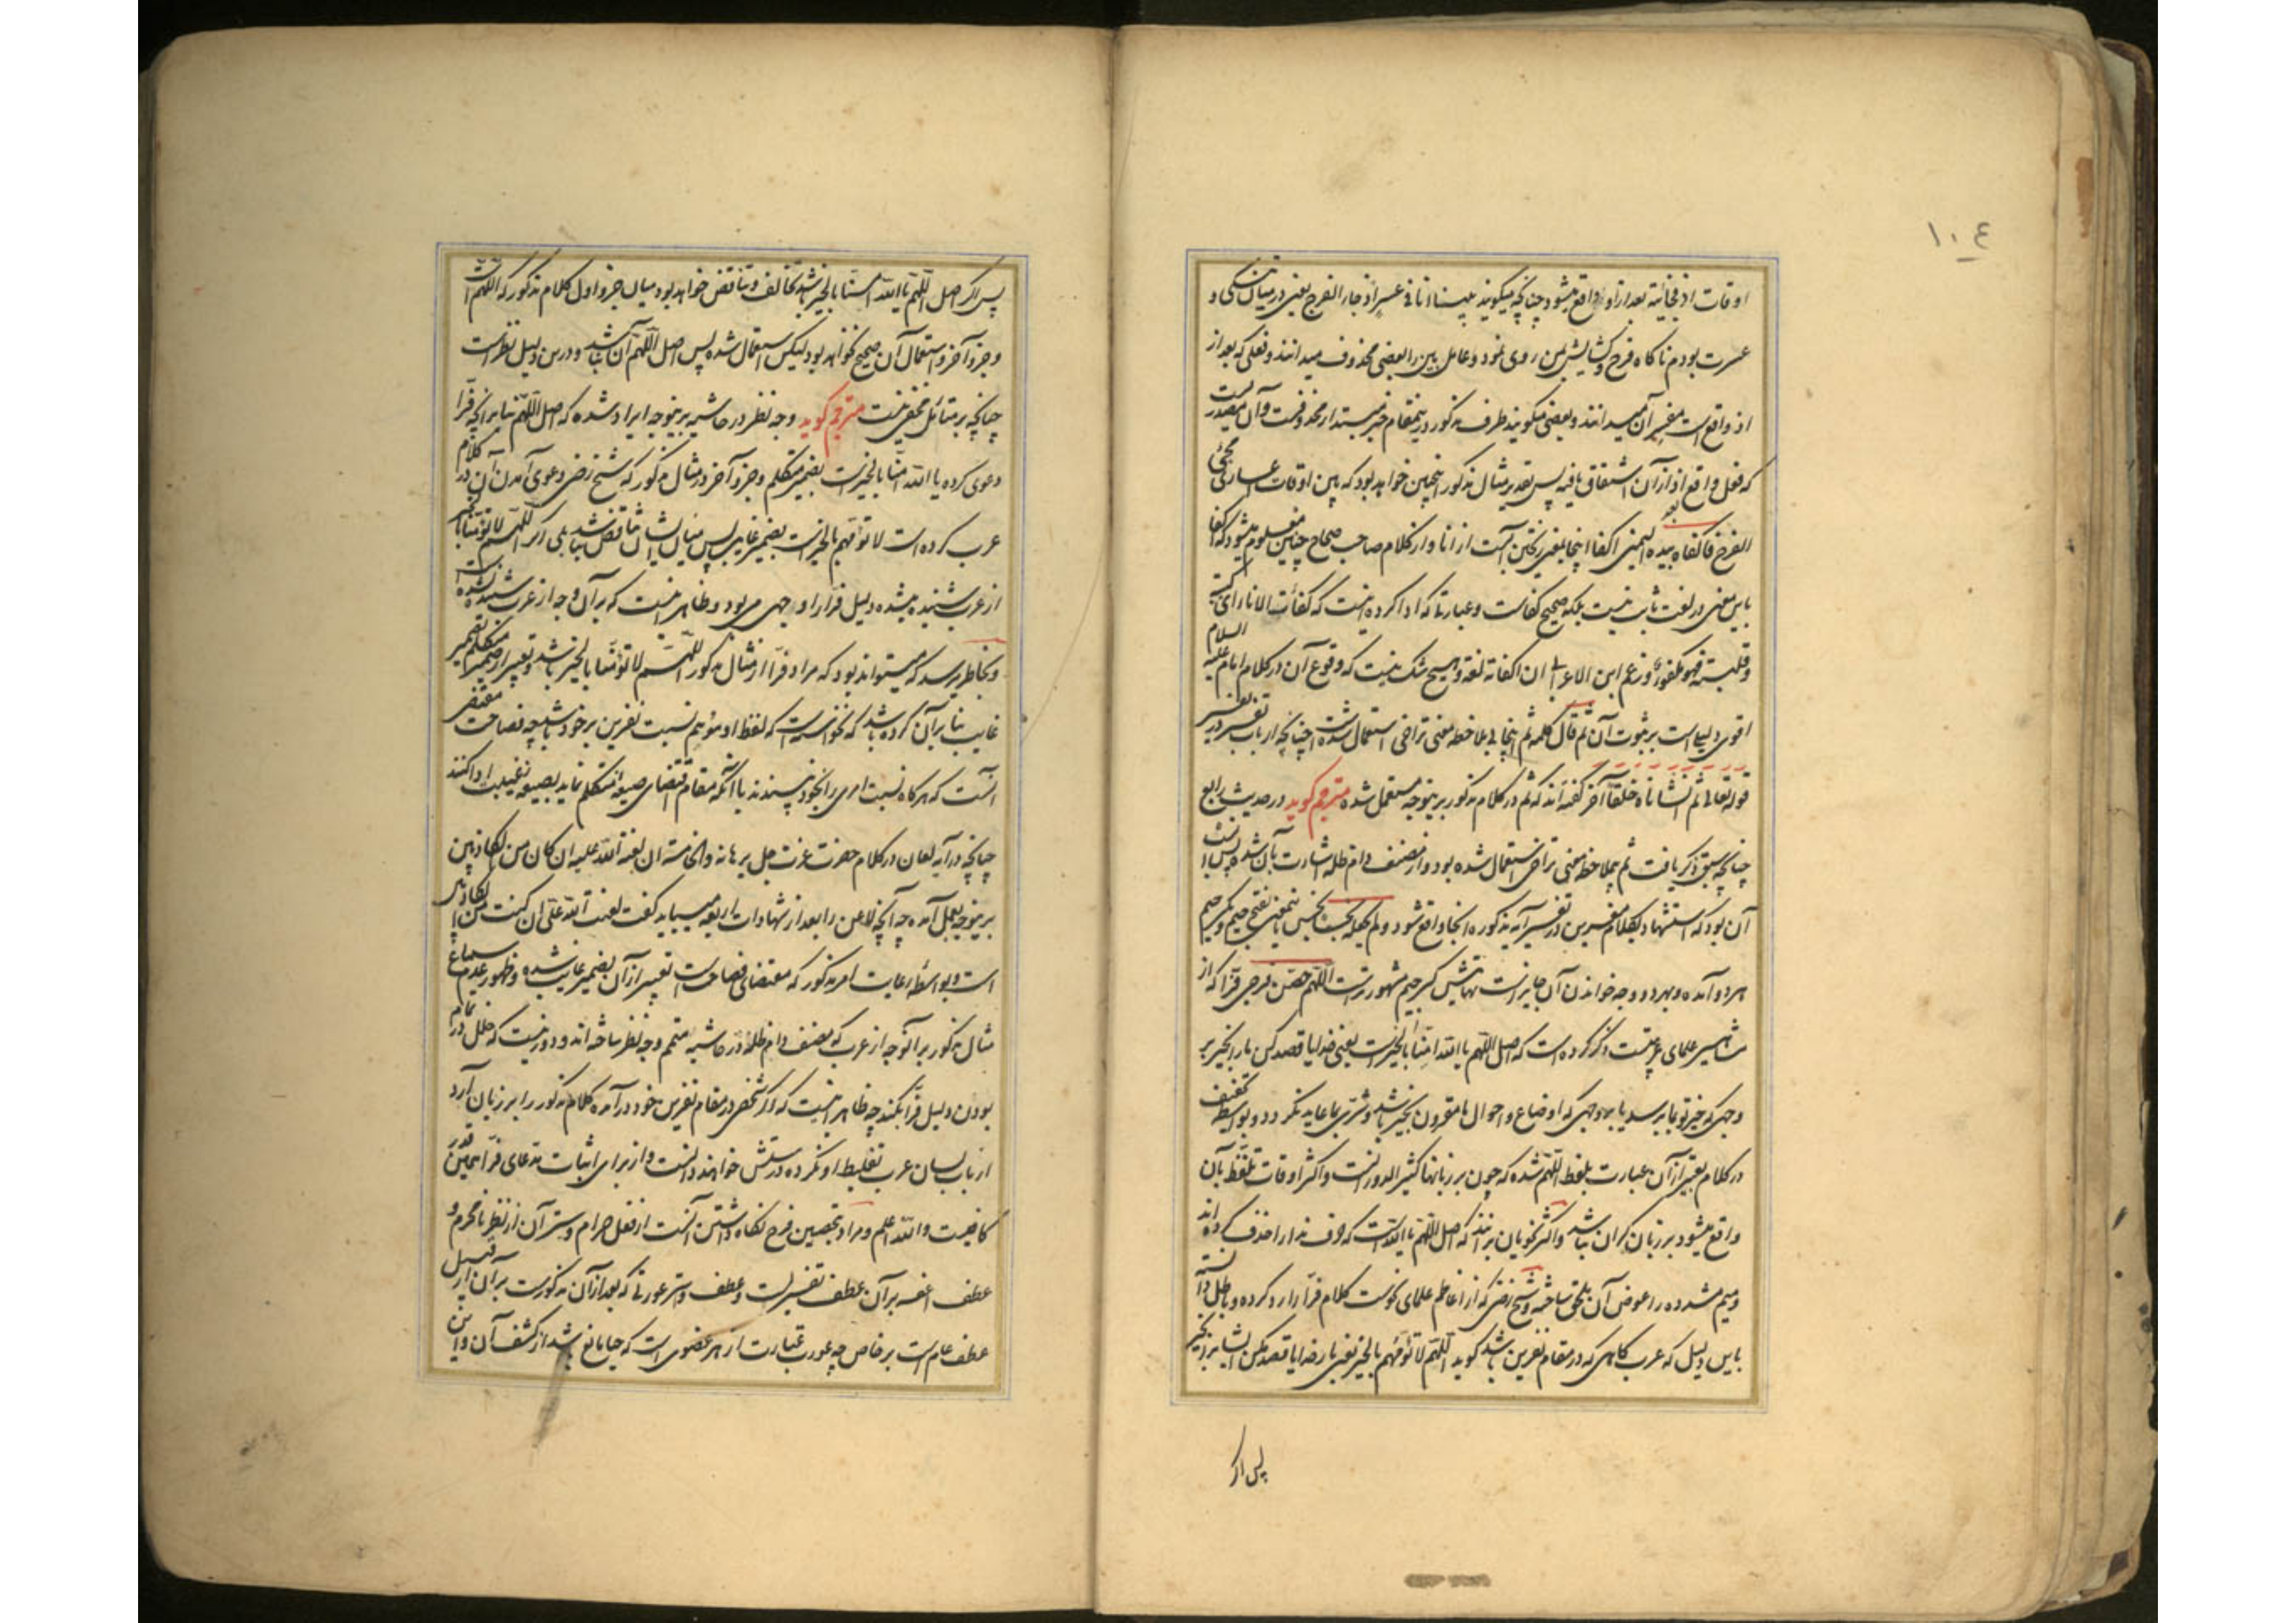 ١٠٤
اوقات اذ فجائیه بعد از او واقع میشود چنانچه میکویند بینا انا فی عسر اذ جاء الفرج یعنی در میان تنکی و
عسرت بودم ناکاه فرح و کشایش بمن روی نمود و عامل بین را بعضی محذوف میدانند و فعلی که بعد از
اذ واقع است مفسر آن میدانند و بعضی میکویند ظرف مذکور در ینمقام خبر مبتداء محذوفست و آن مصدریست
که فعل واقع بعد اذ از آن اشتقاق یافته پس تقدیر مثال مذکور اینچنین خواهد بود که بین اوقات اعساری مجئ
الفرح فاکفاه بیده الیمنی اکفا اینجا بمعنی ریختن آبست از انا و از کلام صاحب صحاح چنین معلوم میشود که اکفا
باین معنی در لغت ثابت نیست بلکه صحیح کفاست و عبارتی که ادا کرده اینست که کفأت الاناء ای کببته
و قلبته فهو مکفوء و زعم ابن الاعرابی ان اکفاته لغة و هیچ شک نیست که وقوع آن در کلام امام علیه السلام
اقوی دلیل است بر ثبوت آن ثم قال کلمه ثم اینجا بی ملاحظه معنی تراخی استعمال شده است چنانچه ارباب تفسیر در تفسیر
قوله تعالی ثم انشاناه خلقا آخر کفته اند که ثم در کلام مذکور برینوجه مستعمل شده مترجم کوید در حدیث رابع
چنانچه سبق ذکر یافت ثم بی ملاحظه معنی تراخی استعمال شده بود و از مصنف دام ظله اشارت بآن شد و پس
آن بود که استشهاد بکلام مفسرین در تفسیر آیه مذکوره آنجا واقع شود ولم یجعله نجسا نجس باینمعنی بفتح جیم و کسر جیم
هر دو آمده و بهر دو وجه خواندن آن جایز است نهایتش کسر جیم مشهورترست اللهم حصن فرجی فرا که از
مشاهیر علمای عربیتست ذکر کرده است که اصل اللهم یا الله امنا بالخیر است یعنی خدایا قصد کن مارا بخیر بر
وجهی که خیر تو بما برسد یا بر وجهی که اوضاع و احوال ما مقرون بخیر باشد و شری بما عاید نکردد و بواسطه تخفیف
در کلام تعبیر از آن عبارت بلفظ اللهم شده که چون بر زبانها کثیر الدورانست و اکثر اوقات تلفظ بآن
واقع میشود بر زبان کران نباشد و اکثر نحویان برانند که اصل اللهم یا الله است که حرف ندا را حذف کرده اند
و میم مشدده را عوض آن ملحق ساخته و شیخ رضی که از اعاظم علمای نحوست کلام فرا را رد کرده و باطل دانسته
باین دلیل که عرب کاهی که در مقام نفرین باشد کوید اللهم لا تؤمهم بالخیر یعنی بار خدایا قصد مکن ایشانرا بخیر
پس اکر
پس اکر اصل اللهم یا الله امنا بالخیر باشد تخالف و تناقض خواهد بود میان جزو اول کلام مذکور که اللهم است
و جزو آخر و استعمال آن صحیح نخواهد بود لیکن استعمال شده پس اصل اللهم آن نباشد و درین دلیل نظر است
چنانچه بر متامل مخفی نیست مترجم کوید وجه نظر در حاشیه برینوجه ایراد شده که اصل اللهم بنا بر آنچه فرا
دعوی کرده یا الله امنا بالخیر است بضمیر متکلم و جزو آخر در مثال مذکور که شیخ رضی دعوی آمدن آن در کلام
عرب کرده است لا تؤمهم بالخیر است بضمیر غایب پس میان ایشان تناقض نباشد بلی اکر اللهم لا تؤمنا بالخیر
از عرب شنیده میشد دلیل فرا را وجهی می بود و ظاهر نیست که بر آن وجه از عرب شنیده شده
و بخاطر میرسد که میتواند بود که مراد فرا از مثال مذکور اللهم لا تؤمنا بالخیر باشد و تعبیر از ضمیر متکلم بضمیر
غایب بنا بر آن کرده باشد که نخواسته است که لفظ او موهم نسبت نفرین بر خود باشد چه فصاحت مقتضی
آنست که هر کاه نسبت امری را بخود نپسندند با آنکه مقام اقتضای صیغه متکلم نماید بصیغه غیبت ادا کنند
چنانچه در آیه لعان در کلام حضرت عزت جل برهانه والخامسة ان لعنة الله علیه ان کان من الکاذبین
برینوجه بعمل آمده چه آنچه لاعن را بعد از شهادات اربعه میباید کفت لعنت الله علی ان کنت من الکاذبین
است و بواسطه رعایت امر مذکور که مقتضای فصاحت است تعبیر از آن بضمیر غایب شده و ظهور عدم سماع
مثال مذکور بر آنوجه از عرب که مصنف دام ظله در حاشیه متمم وجه نظر ساخته اند و دور نیست که خلل در تمام
بودن دلیل فرا نکند چه ظاهر اینست که اکر شخصی در مقام نفرین خود در آمده کلام مذکور را بر زبان آرد
ارباب لسان عرب تغلیط او نکرده درستش خواهند دانست و از برای اثبات مدعای فرا همین قدر
کافیست والله اعلم و مراد بتحصین فرج نکاه داشتن آنست از فعل حرام و ستر آن از نظر نامحرم و
عطف اعفه بر آن عطف تفسیر است و عطف و استر عورتی که بعد از آن مذکورست بر آن از قبیل
عطف عام است بر خاص چه عورت عبارت از هر عضوی است که حیا مانع باشد از کشف آن و این